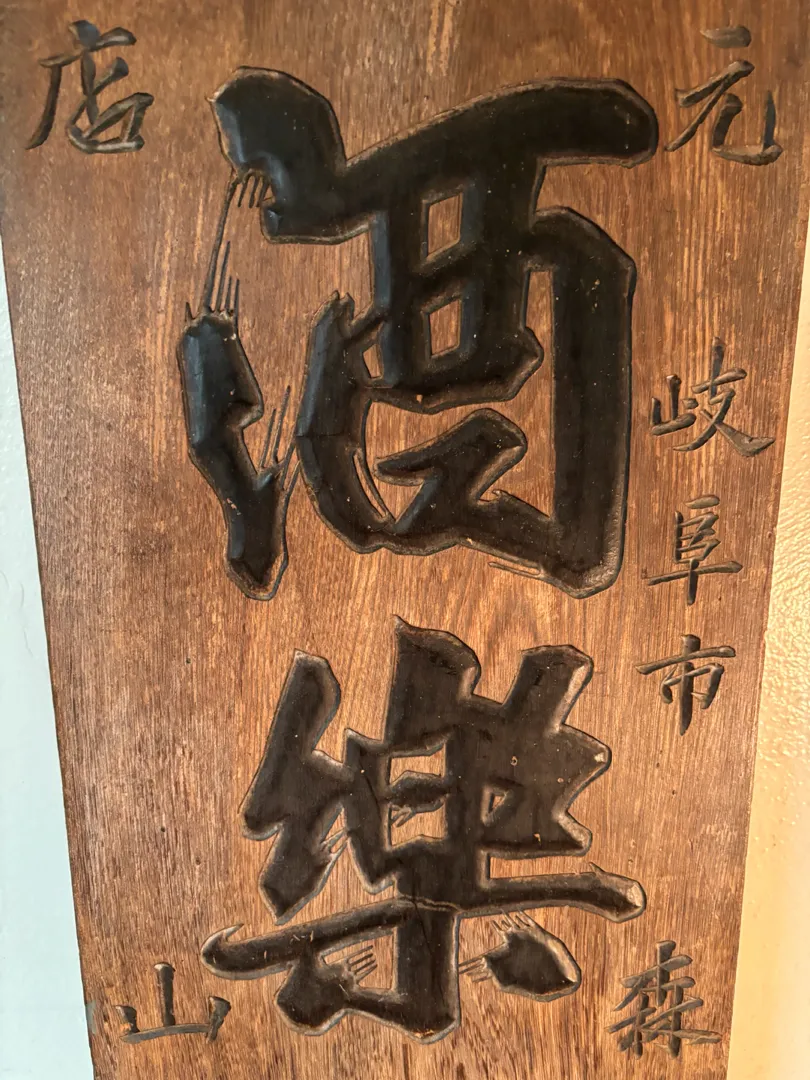 元
岐阜市
森
酒樂
店
山